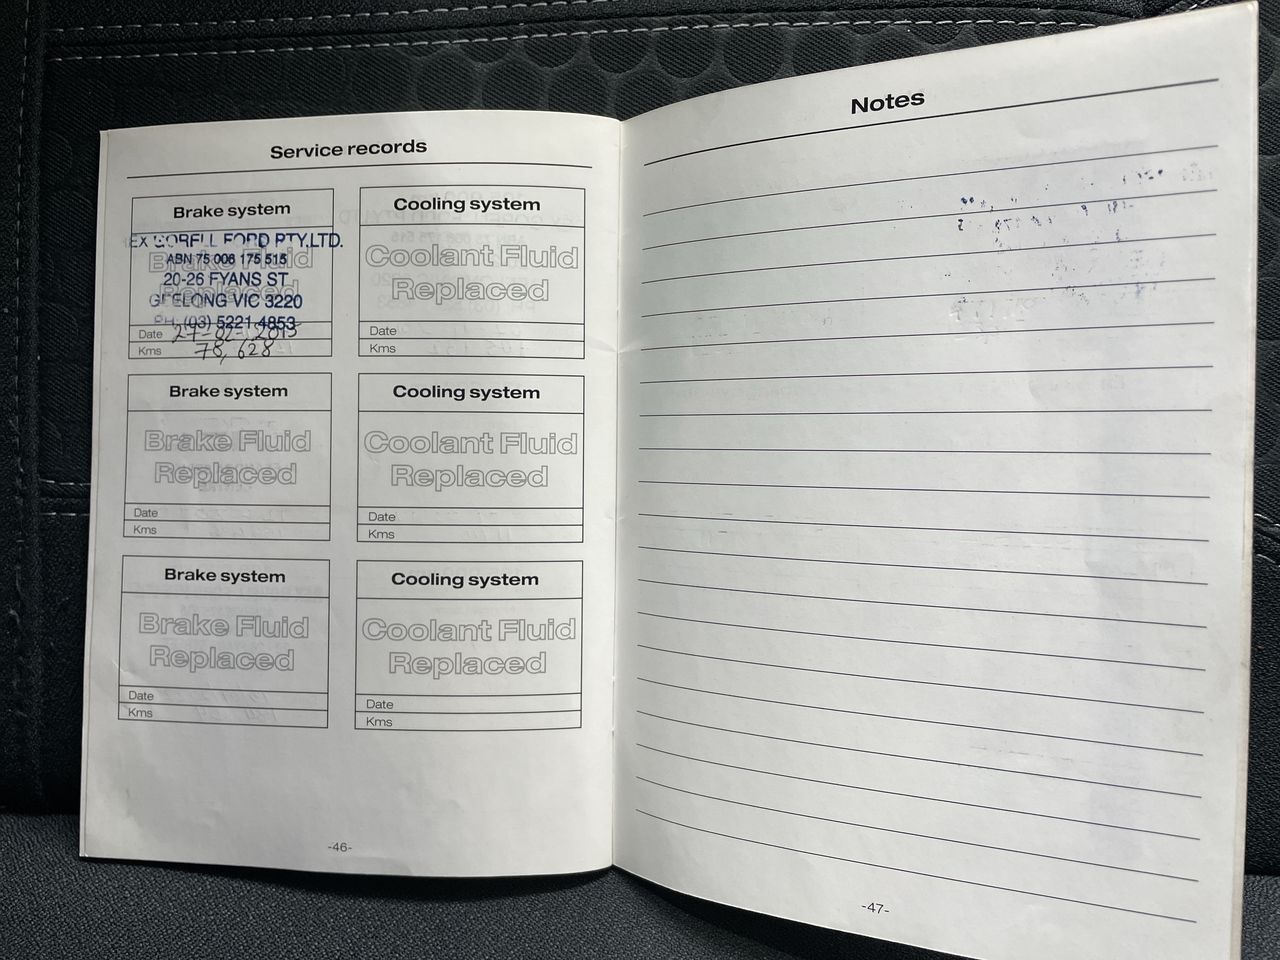 Service records
Brake system
Brake Fluid
Replaced
EX GORELL FORD PTY.LTD.
ABN 75 006 175 515
20-26 FYANS ST
GEELONG VIC 3220
PH: (03) 5221 4853
Date 27-02-2015
Kms 78,628
Cooling system
Coolant Fluid
Replaced
Date
Kms
Brake system
Brake Fluid
Replaced
Date
Kms
Cooling system
Coolant Fluid
Replaced
Date
Kms
Brake system
Brake Fluid
Replaced
Date
Kms
Cooling system
Coolant Fluid
Replaced
Date
Kms
-46-
Notes
-47-